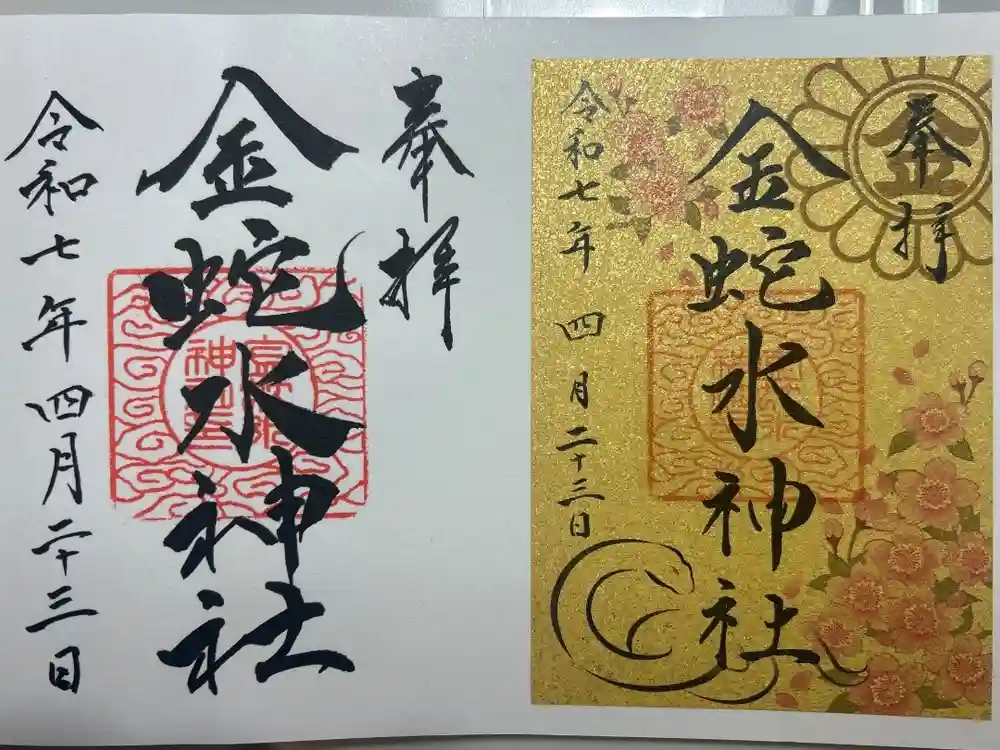 奉拝
金蛇水神社
令和七年四月二十三日
奉拝
金
金蛇水神社
令和七年四月二十三日